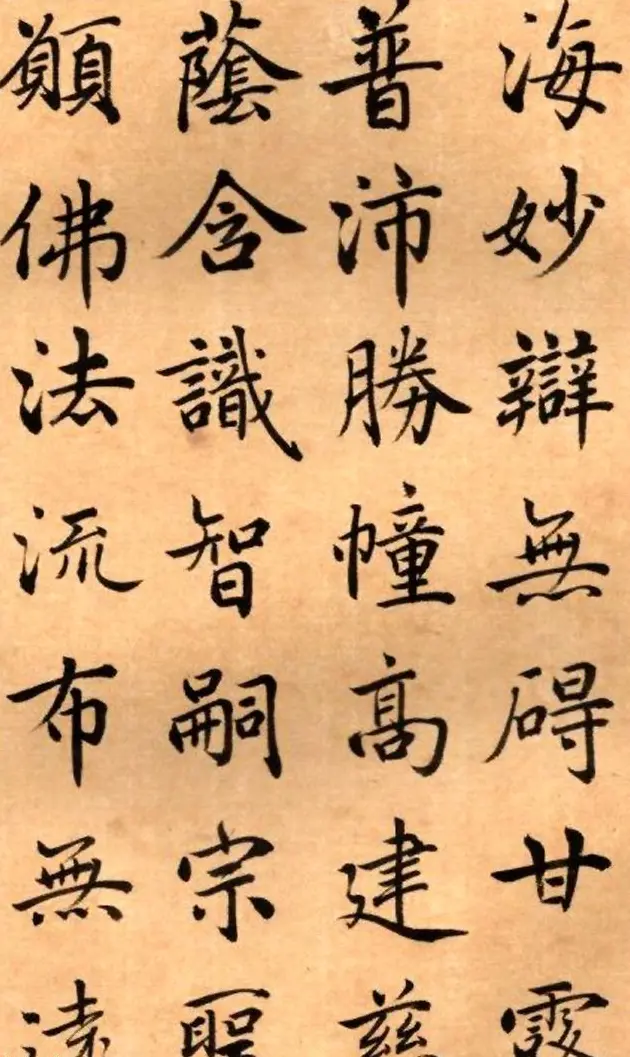 海妙辯無碍甘露
普沛勝幢高建慈
蔭含識智嗣宗聖
願佛法流布無遠